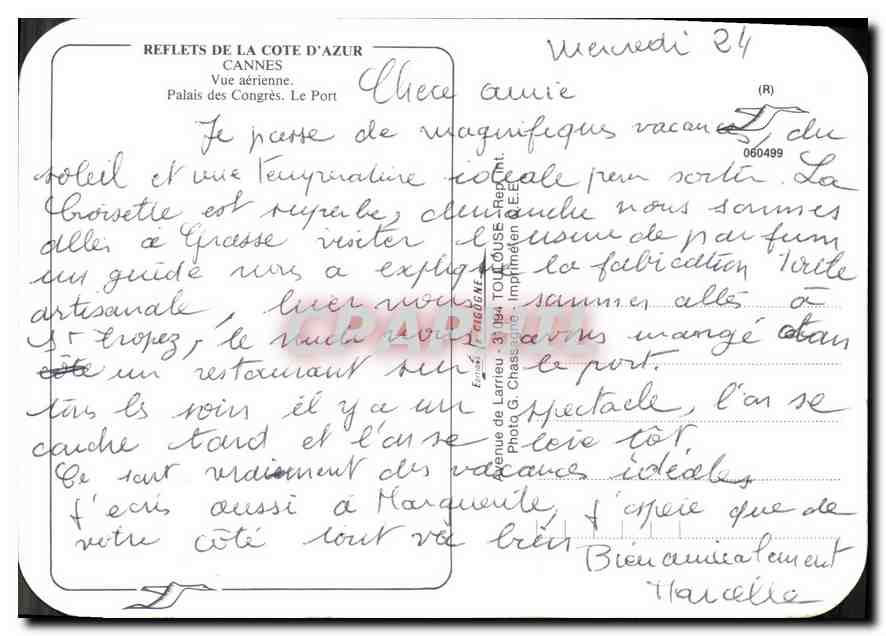 REFLETS DE LA COTE D'AZUR
CANNES
Vue aérienne.
Palais des Congrès. Le Port
Mercredi 24
Chere amie
(R)
060499
Je passe de magnifiques vacances, du
soleil et une température idéale pour sortir. La
Croisette est superbe, dimanche nous sommes
allés à Grasse visiter l'usine de parfum
un guide nous a expliqué la fabrication toute
artisanale, hier nous sommes allés à
St Tropez, le midi nous avons mangé dan
un restaurant sur le port.
tous les soirs il y a un spectacle, l'on se
couche tard et l'on se lève tôt
Ce sont vraiement des vacances idéales
j'ecris aussi à Marguerite, j'espère que de
votre côté tout va bien
Bien amicalement
Marcelle
Editions "la CIGOGNE"
Avenue de Larrieu - 31094 TOULOUSE - Rep. Int.
Photo G. Chassagne - Imprimé en C.E.E.
CPARAMA